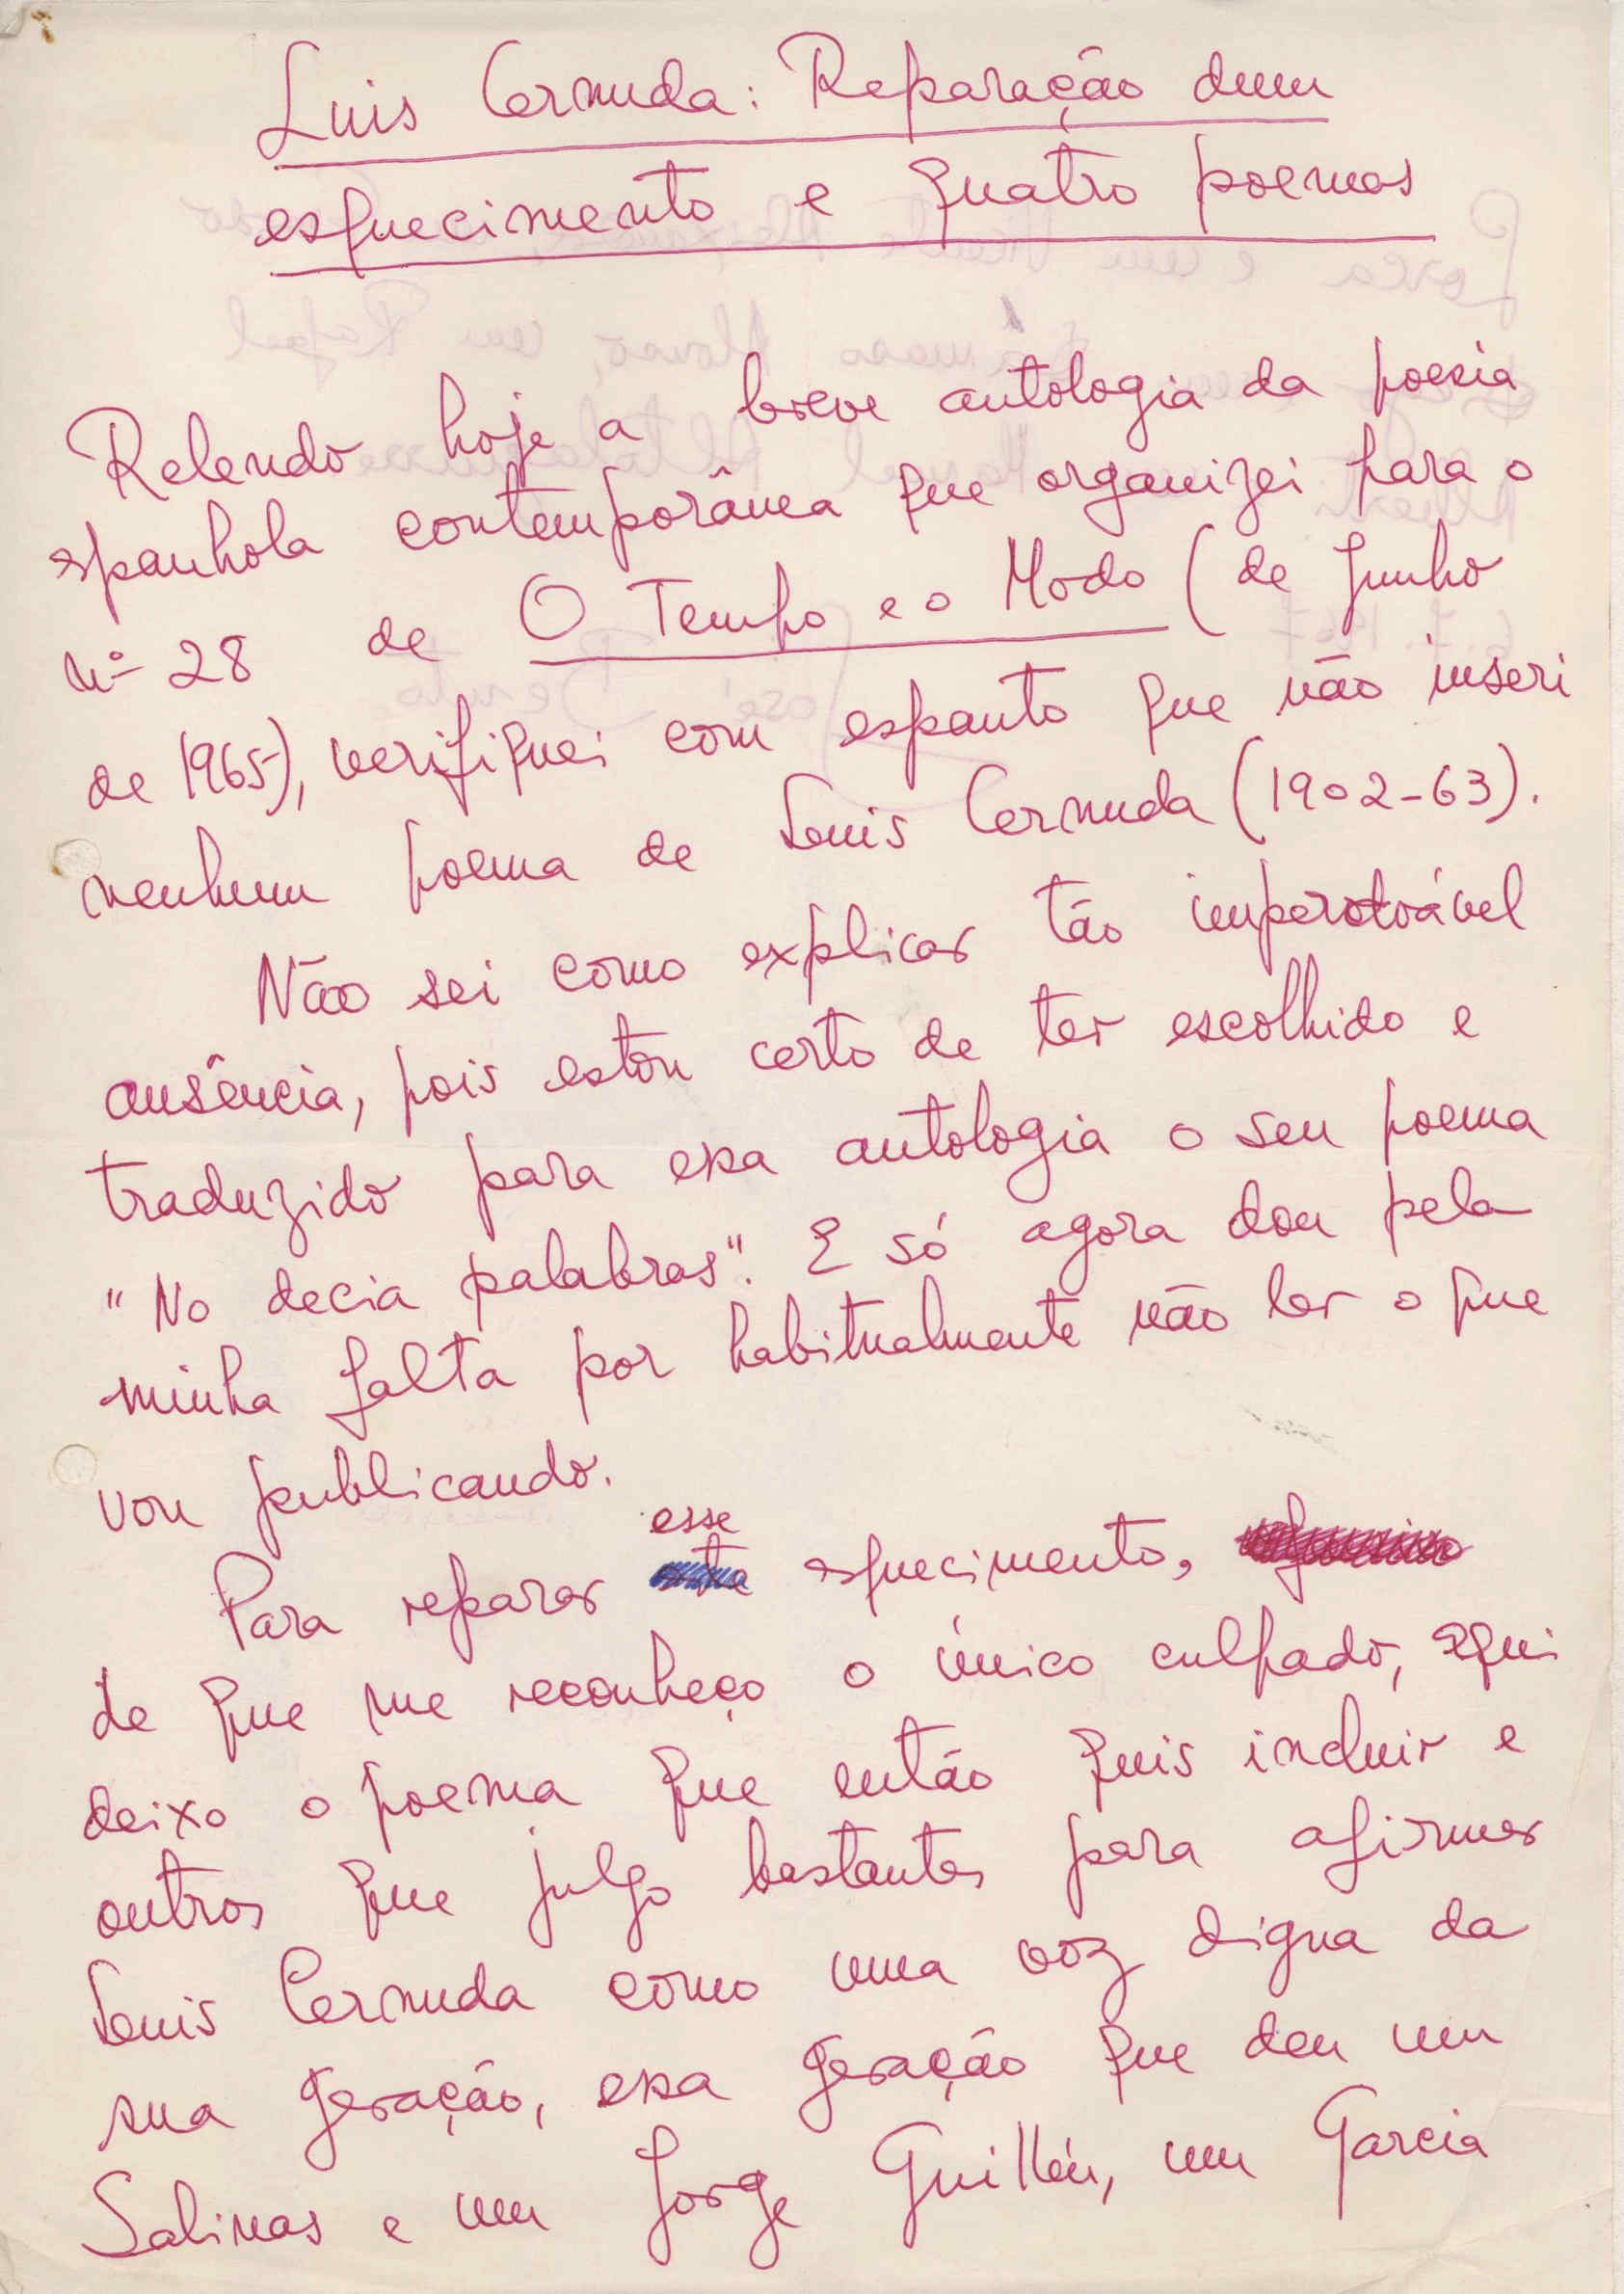 Luis Cernuda: Reparação dum
esquecimento e quatro poemas
Relendo hoje a breve antologia da poesia
espanhola contemporânea que organizei para o
nº 28 de O Tempo e o Modo (de Junho
de 1965), verifiquei com espanto que não inseri
nenhum poema de Luis Cernuda (1902-63).
Não sei como explicar tão imperdoável
ausência, pois estou certo de ter escolhido e
traduzido para essa antologia o seu poema
"No decia palabras". E só agora dou pela
minha falta por habitualmente não ler o que
vou publicando.
esse
Para reparar esquecimento,
de que me reconheço o único culpado, aqui
deixo o poema que então quis incluir e
outros que julgo bastantes para afirmar
Luis Cernuda como uma voz digna da
sua geração, essa geração que deu um
Salinas e um Jorge Guillén, um Garcia